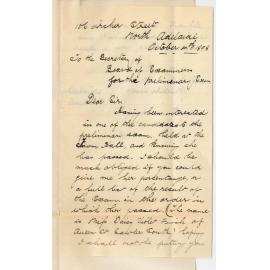 106 Archer Street
North Adelaide
October 10th 1908
To the Secretary of
Board of Examiners
for the preliminary Exam
Dear Sir,
Having been interested
in one of the candidates of the
preliminary exam, held at the
Town Hall, and knowing she
has passed. I should be
much obliged if you could
give me her percentage or
a full list of the result of
the Exam in the order in
which they passed. The name
is Miss Daisy Violet Finch of
Queen St Gawler South, hoping
I shall not be putting you